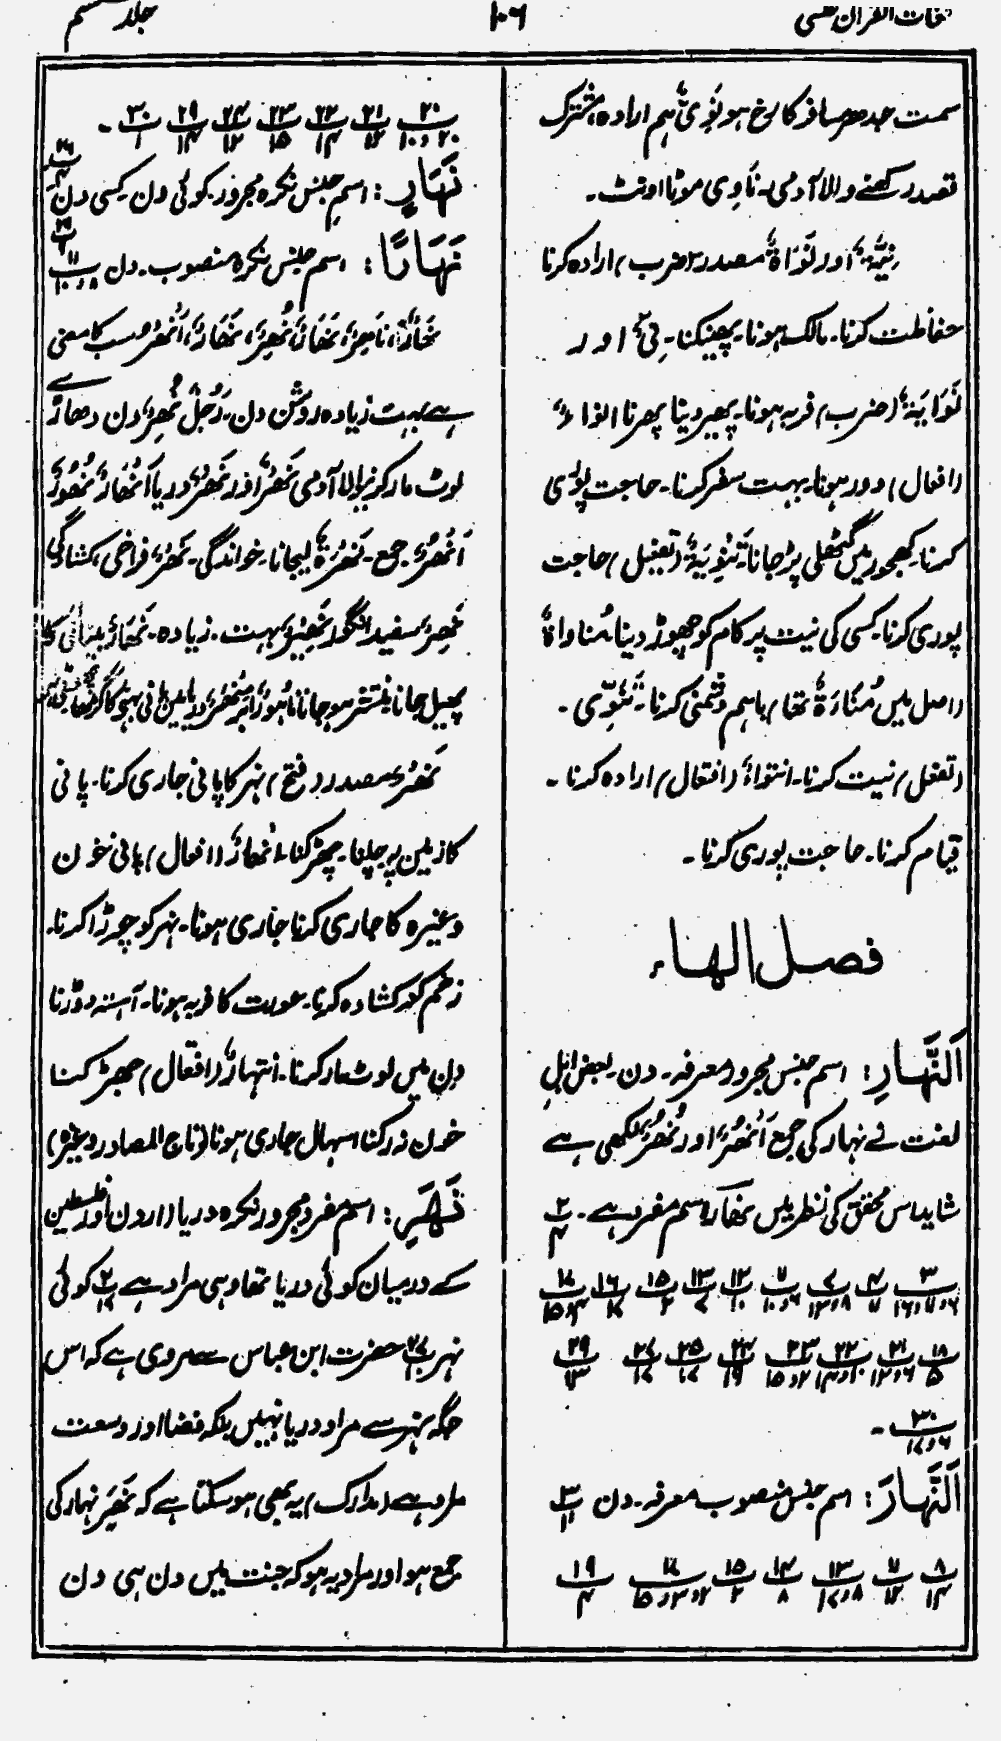 لغات القرآن
۱۰۶
جلد ششم
سمت جدھر مسافر کا رخ ہو نَوِیٌّ ہم ارادہ، مشترک
قصد رکھنے والا آدمی۔ نَاوِی موٹا اونٹ۔
نِیَّۃٌ اور نَوَاۃٌ مصدر (ضرب) ارادہ کرنا
حفاظت کرنا۔ مالک ہونا۔ پھینکنا۔ نِیٌّ اور
نَوَایَۃٌ (ضرب) فربہ ہونا۔ پھیر دینا پھرنا انواءٌ
(افعال) دور ہونا۔ بہت سفر کرنا۔ حاجت پوری
کرنا۔ کھجور میں گٹھلی پڑجانا تَنْوِیَۃٌ (تفعیل) حاجت
پوری کرنا۔ کسی کی نیت پر کام کو چھوڑ دینا۔ مُناواۃٌ
(اصل میں مُنَاوَءَۃٌ تھا) باہم دشمنی کرنا۔ تَنَوِّی۔
(تفعل) نیت کرنا۔ انتواءٌ (افتعال) ارادہ کرنا۔
قیام کرنا۔ حاجت پوری کرنا۔
فصل الہاء
اَلنَّہَارِ: اسم جنس مجرور معرفہ۔ دن۔ بعض اہلِ
لغت نے نہار کی جمع اَنْھُرٌ اور نُھُرٌ لکھی ہے
شاید اس محقق کی نظر میں نَھَارٌ اسم مفرد ہے۔ ۲/۴
۳/۶و۷و۱۶ ۴/۷ ۷/۸و۱۳ ۷/۶و۱۰ ۱۲/۱۰ ۱۳/۷ ۱۵/۲ ۱۶/۱۷ ۱۷/۴و۱۵
۱۸/۵ ۲۱/۶و۱۲ ۲۲/۱۰و۱۴ ۲۳/۲و۱۵ ۲۴/۱۹ ۲۵/۱۷ ۲۷/۱۷ ۲۹/۱۳
۳۰/۶و۱۷۔
اَلنَّہَارَ: اسم جنس منصوب معرفہ۔ دن ۳/۱۱
۸/۱۴ ۷/۱۲ ۱۳/۸و۱۷ ۱۴/۸ ۱۵/۲ ۱۷/۲و۳و۱۵ ۱۹/۴
۲۰/۲۰و۱۰ ۲۱/۱۲ ۲۲/۱۴ ۲۳/۱۵ ۲۴/۱۲ ۲۹/۱۴ ۳۰/۱۔
نَہَارٍ: اسمِ جنس نکرہ مجرور۔ کوئی دن۔ کسی دن
نَہَارًا: اسم جنس نکرہ منصوب۔ دن ۱۱/۸و۱۰
نَھَارٌ، نَاھِرٌ، نَھَارٌ، نُھِرٌ، نَھَارٌ، اَنْھَرُ سب کا معنی
ہے بہت زیادہ روشن دن۔ رَجُلٌ نُھِرٌ دن دھاڑے
لوٹ مار کرنیوالا آدمی نَھْرٌ اور نَھَرٌ دریا اَنْھَارٌ نُھُوْرٌ
اَنْھُرٌ جمع۔ نَھْرَۃٌ لیجانا۔ خواندگی۔ نَھْرٌ فراخی، کشادگی
نَھِرٌ سفید انگور نَھِیْرٌ بہت۔ زیادہ۔ نَھَارٌ
پھیل جانا۔ منتشر ہوجانا
نَھْرٌ مصدر (فتح) نہر کا پانی جاری کرنا۔ پانی
کا زمین پر چلنا۔ جھڑکنا۔ اِنْھَارٌ (افعال) پانی خون
وغیرہ کا جاری کرنا جاری ہونا۔ نہر کو چوڑا کرنا۔
زخم کو کشادہ کرنا۔ عورت کا فربہ ہونا۔ آہستہ دوڑنا
دن میں لوٹ مار کرنا۔ انتہارٌ (افتعال) جھڑکنا
خون نہ رکنا اسہال جاری ہونا (تاج المصادر وغیرہ)
نَھَرٍ: اسم مفرد مجرور نکرہ دریا (اردن اور فلسطین
کے درمیان کوئی دریا تھا وہی مراد ہے ۲/۱۶ کوئی
نہر ۲۷ حضرت ابن عباس سے مروی ہے کہ اس
جگہ نہر سے مراد دریا نہیں بلکہ فضا اور وسعت
مراد ہے (مدارک) یہ بھی ہوسکتا ہے کہ نَھَر نہار کی
جمع ہو اور مراد یہ ہو کہ جنت میں دن ہی دن